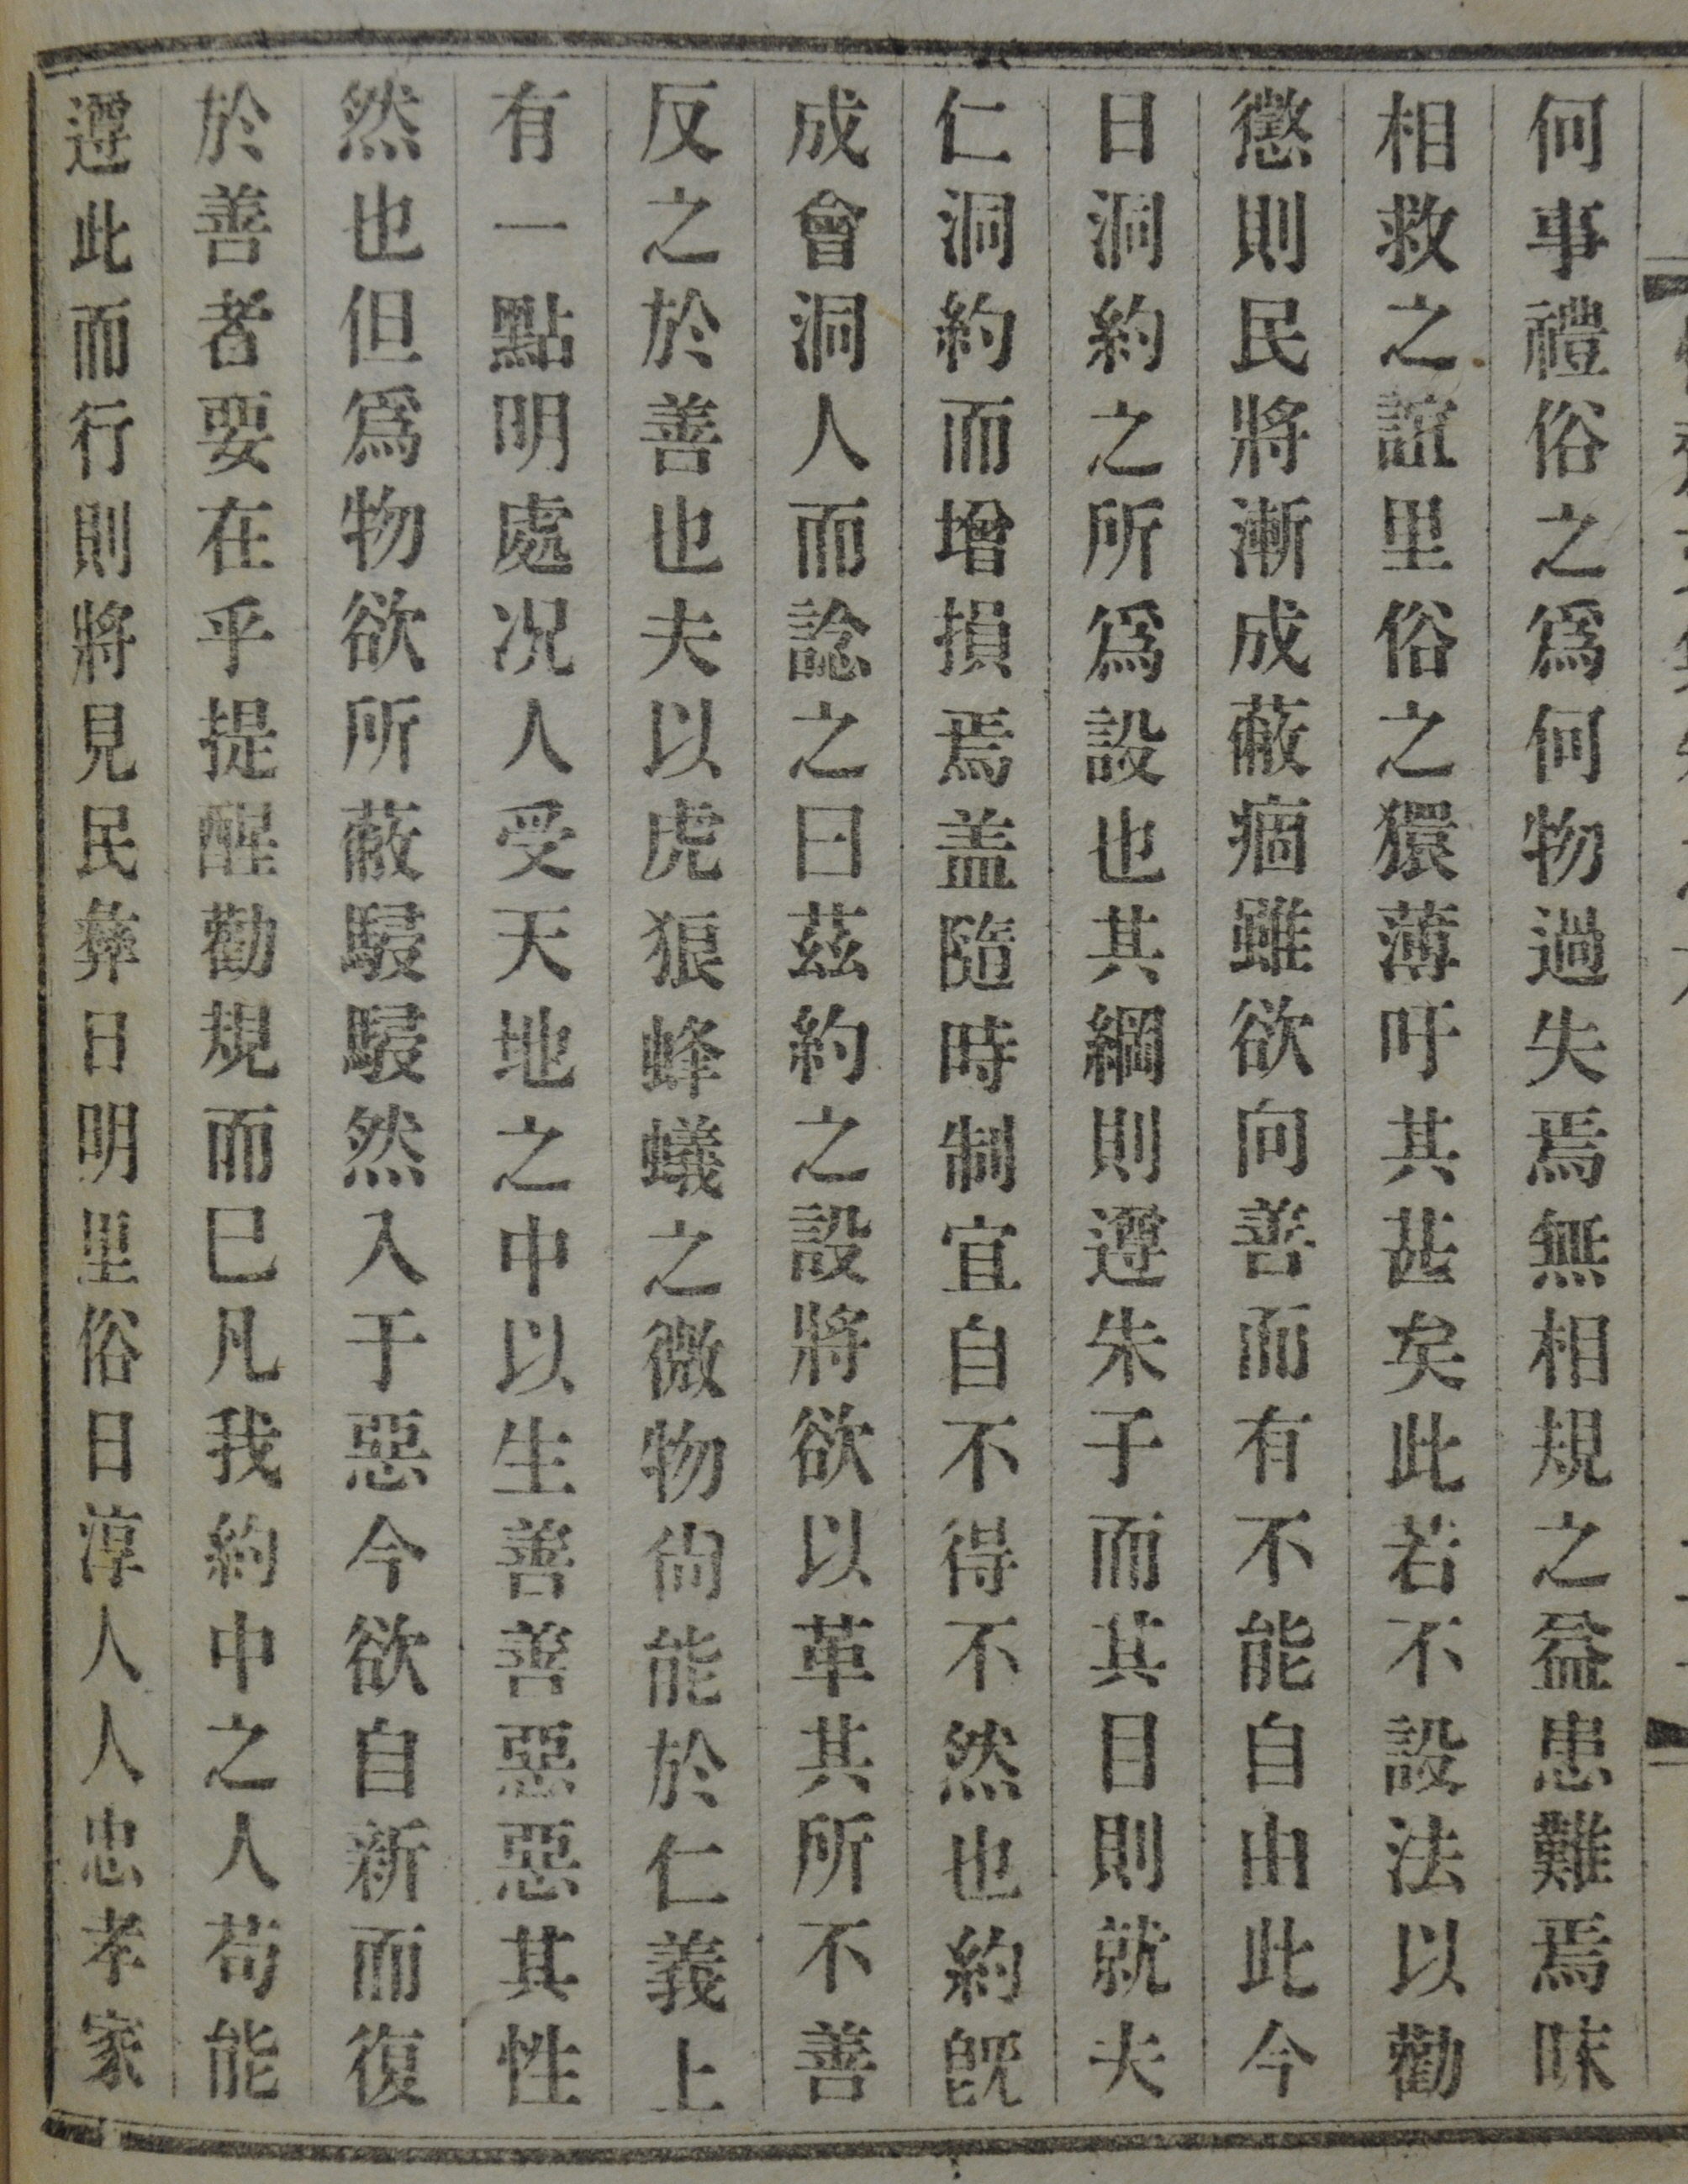 何事禮俗之爲何物過失焉無相規之益患難焉昧
相救之誼里俗之獧薄吁其甚矣此若不設法以勸
懲則民將漸成蔽痼雖欲向善而有不能自由此今
日洞約之所爲設也其綱則遵朱子而其目則就夫
仁洞約而增損焉盖隨時制宜自不得不然也約旣
成會洞人而諗之曰茲約之設將欲以革其所不善
反之於善也夫以虎狼蜂蟻之微物尙能於仁義上
有一點明處况人受天地之中以生善善惡惡其性
然也但爲物欲所蔽駸駸然入于惡今欲自新而復
於善者要在乎提醒勸規而已凡我約中之人苟能
遵此而行則將見民彝日明里俗日淳人人忠孝家